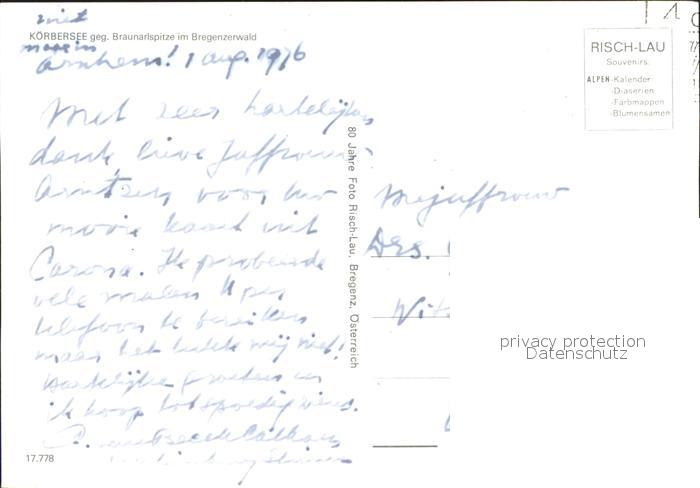 niet
KÖRBERSEE geg. Braunarlspitze im Bregenzerwald
mooi in
Arnhem! 1 aug. 1976
Met zeer hartelijken
dank lieve Juffrouw
Arntzen voor Uw
mooie kaart uit
Carona. Ik probeerde
vele malen U per
telefoon te bereiken
maar het lukte mij niet!
Hartelijke groeten en
ik hoop tot spoedig ziens.
17.778
80 Jahre Foto Risch-Lau, Bregenz, Österreich
RISCH-LAU
Souvenirs:
ALPEN-Kalender
-Diaserien
-Farbmappen
-Blumensamen
Mejuffrouw
Drs.
privacy protection
Datenschutz